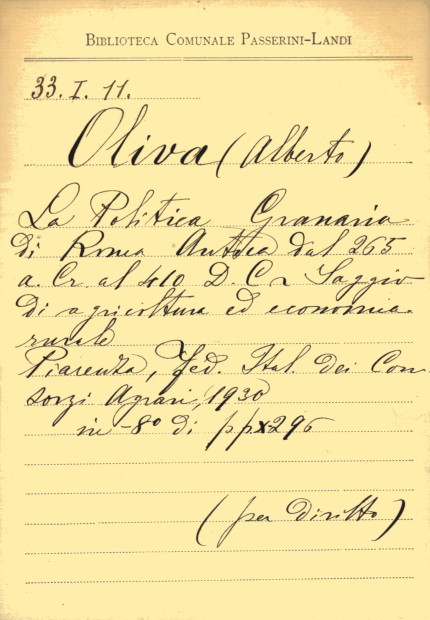 BIBLIOTECA COMUNALE PASSERINI-LANDI
33. I. 11.
Oliva (Alberto)
La Politica Granaria
di Roma Antica dal 265
a. Cr. al 410 D. C. Saggio
di agricoltura ed economia
rurale
Piacenza, Fed. Ital. dei Con
sorzi Agrari, 1930
in-8º di pp x 296
(per diritto)